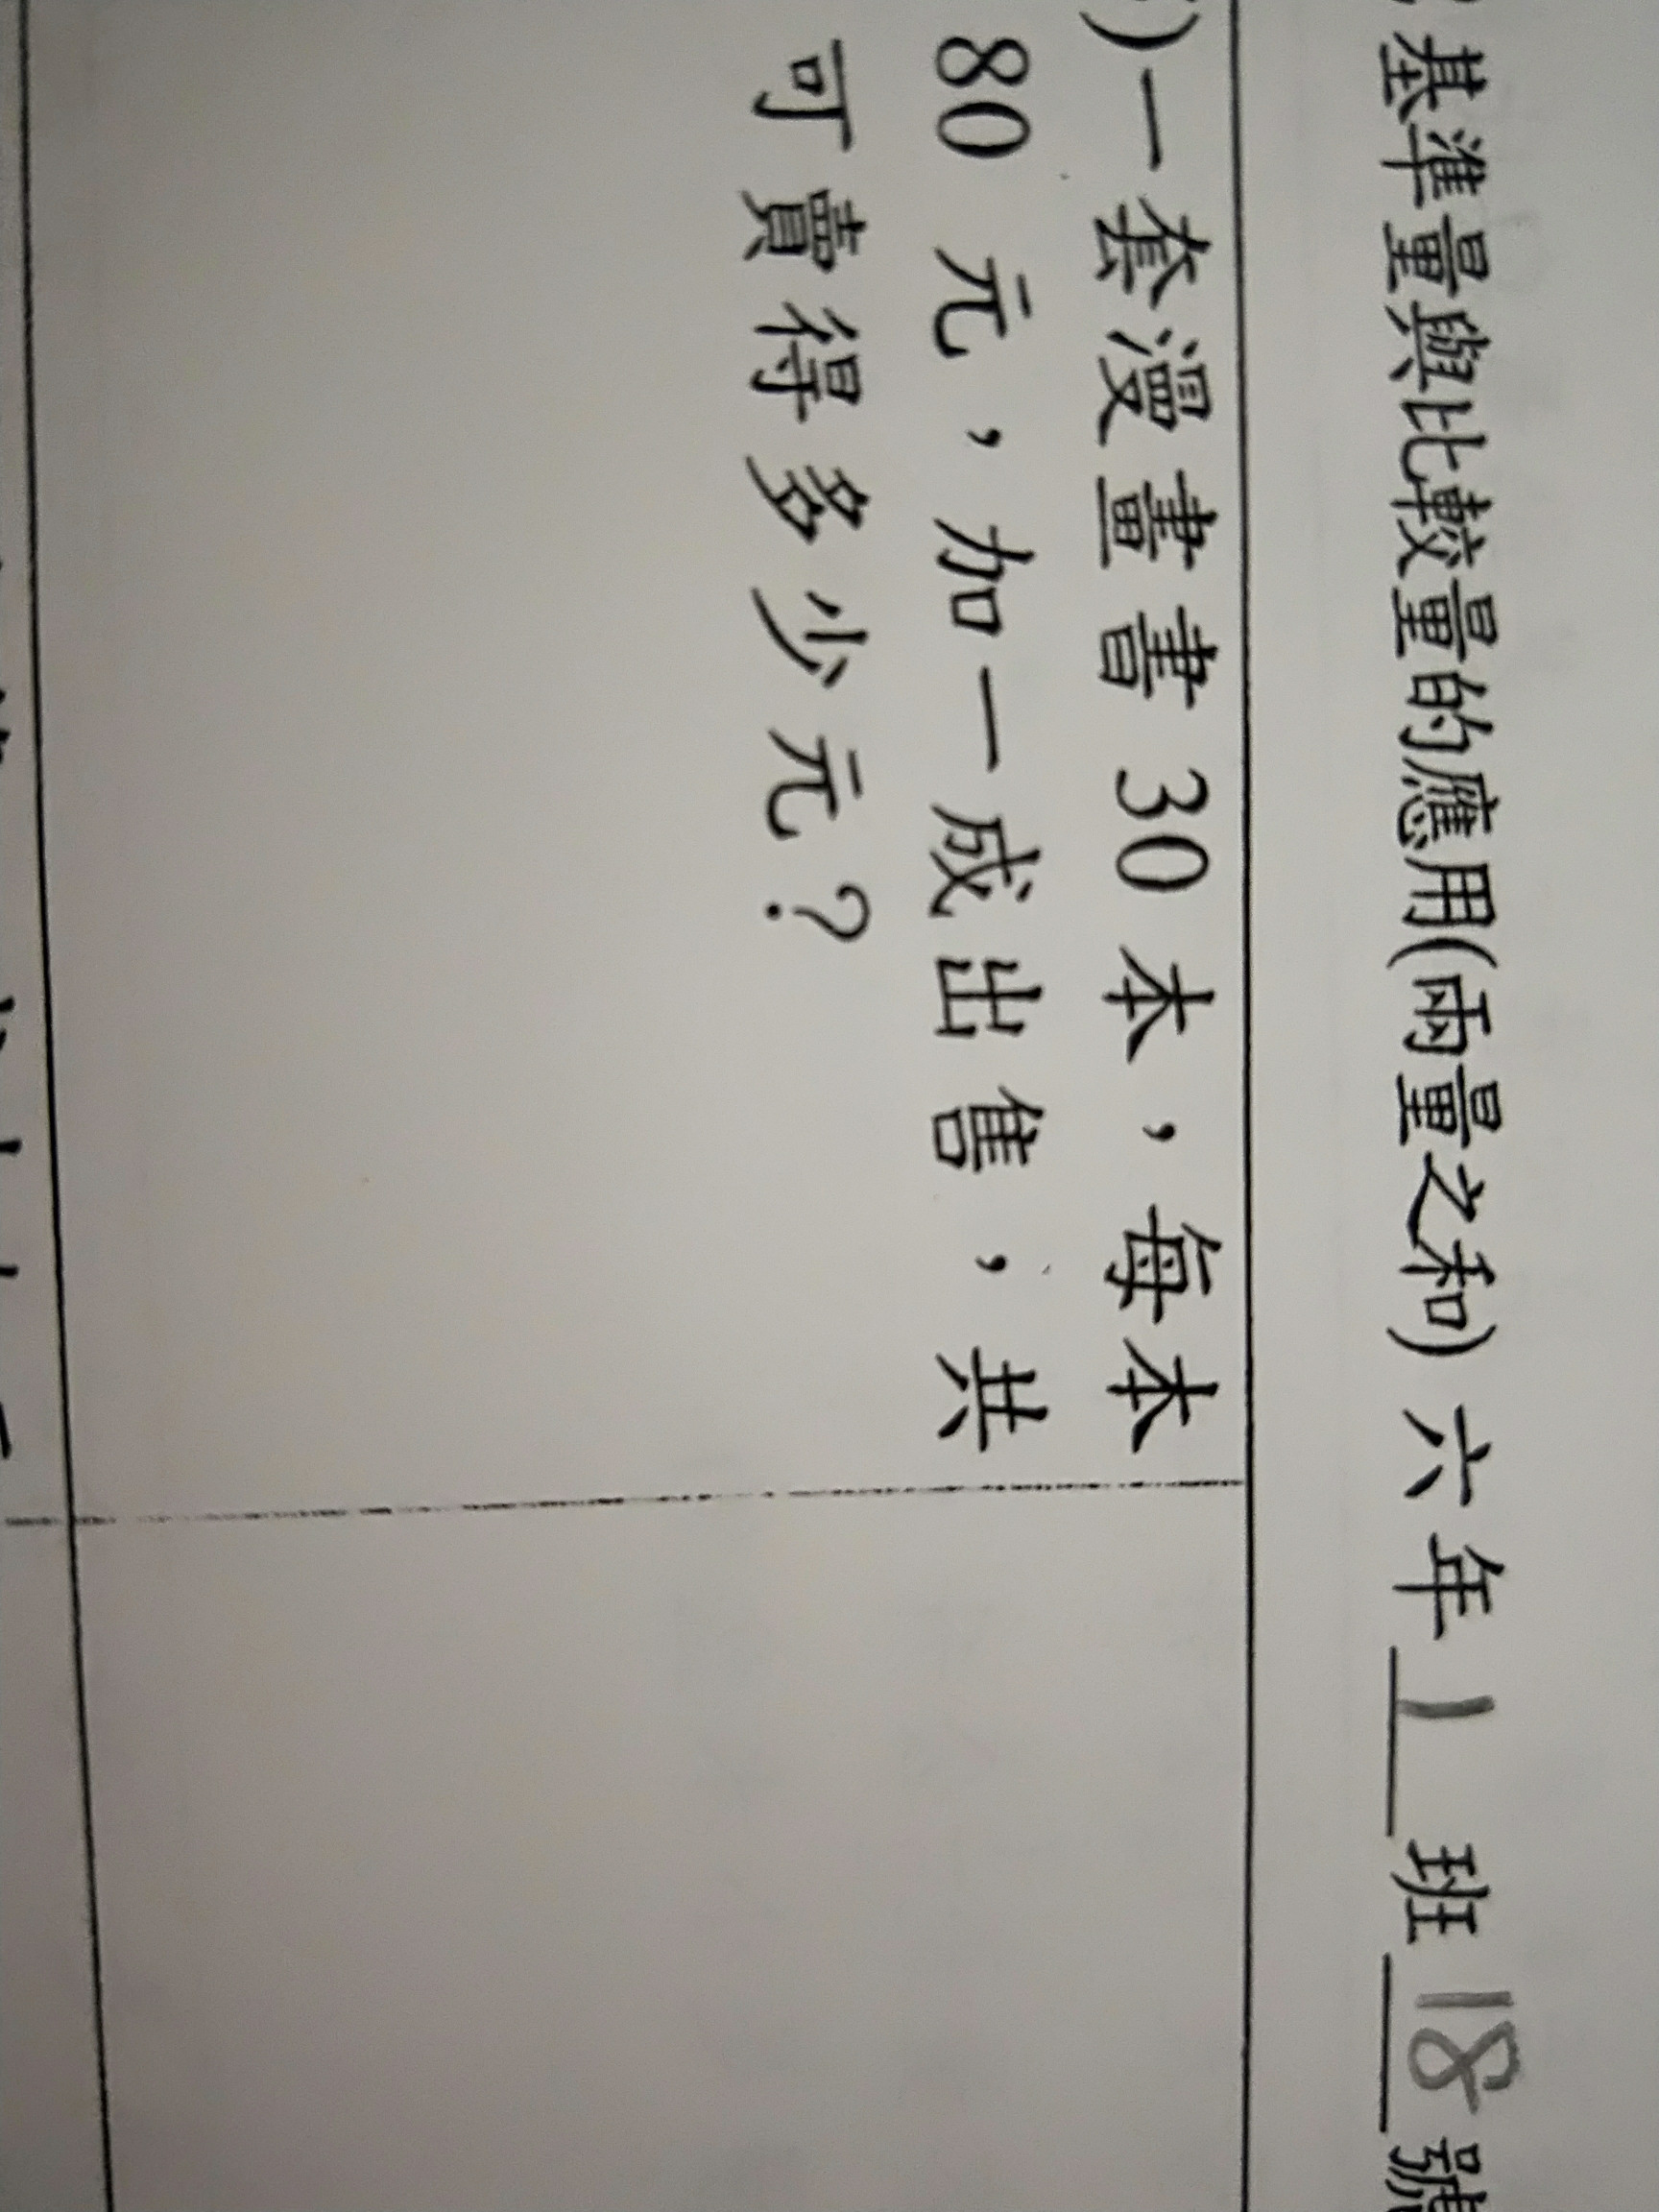 基準量與比較量的應用(兩量之和) 六年 1 班 18 號
)一套漫畫書 30 本，每本
80 元，加一成出售，共
可賣得多少元？